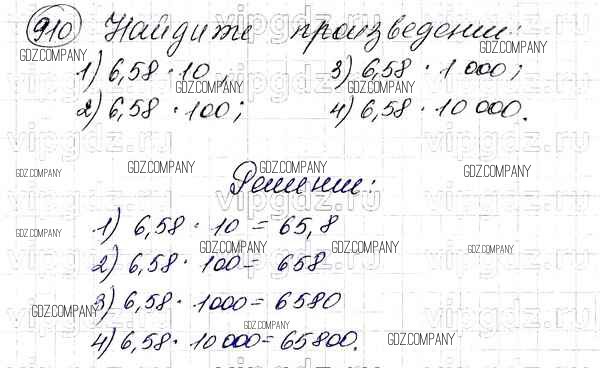 910 Найдите произведение:
1) 6,58 · 10 3) 6,58 · 1 000;
2) 6,58 · 100; 4) 6,58 · 10 000.
Решение:
1) 6,58 · 10 = 65,8
2) 6,58 · 100 = 658
3) 6,58 · 1000 = 6580
4) 6,58 · 10 000 = 65800.
vipgdz.ru
GDZ.COMPANY